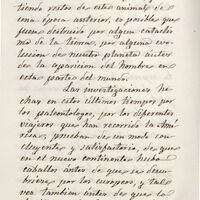 tiendo restos de este animal de
una época anterior, es posible que
fuese destruido por algun cataclis
mo de la tierra, por alguna evo-
lucion de nuestro planeta antes
de la aparicion del hombre en
esta parte del mundo.
Las investigaciones he
chas en estos últimos tiempos por
los paleontologos, por los diferentes
viajeros que han recorrido la Amé
rica, prueban de un modo con-
cluyente y satisfactorio, de que
en el nuevo continente hubo
caballos antes de que se descu-
briera por los europeos, y tal
vez tambien antes de que la